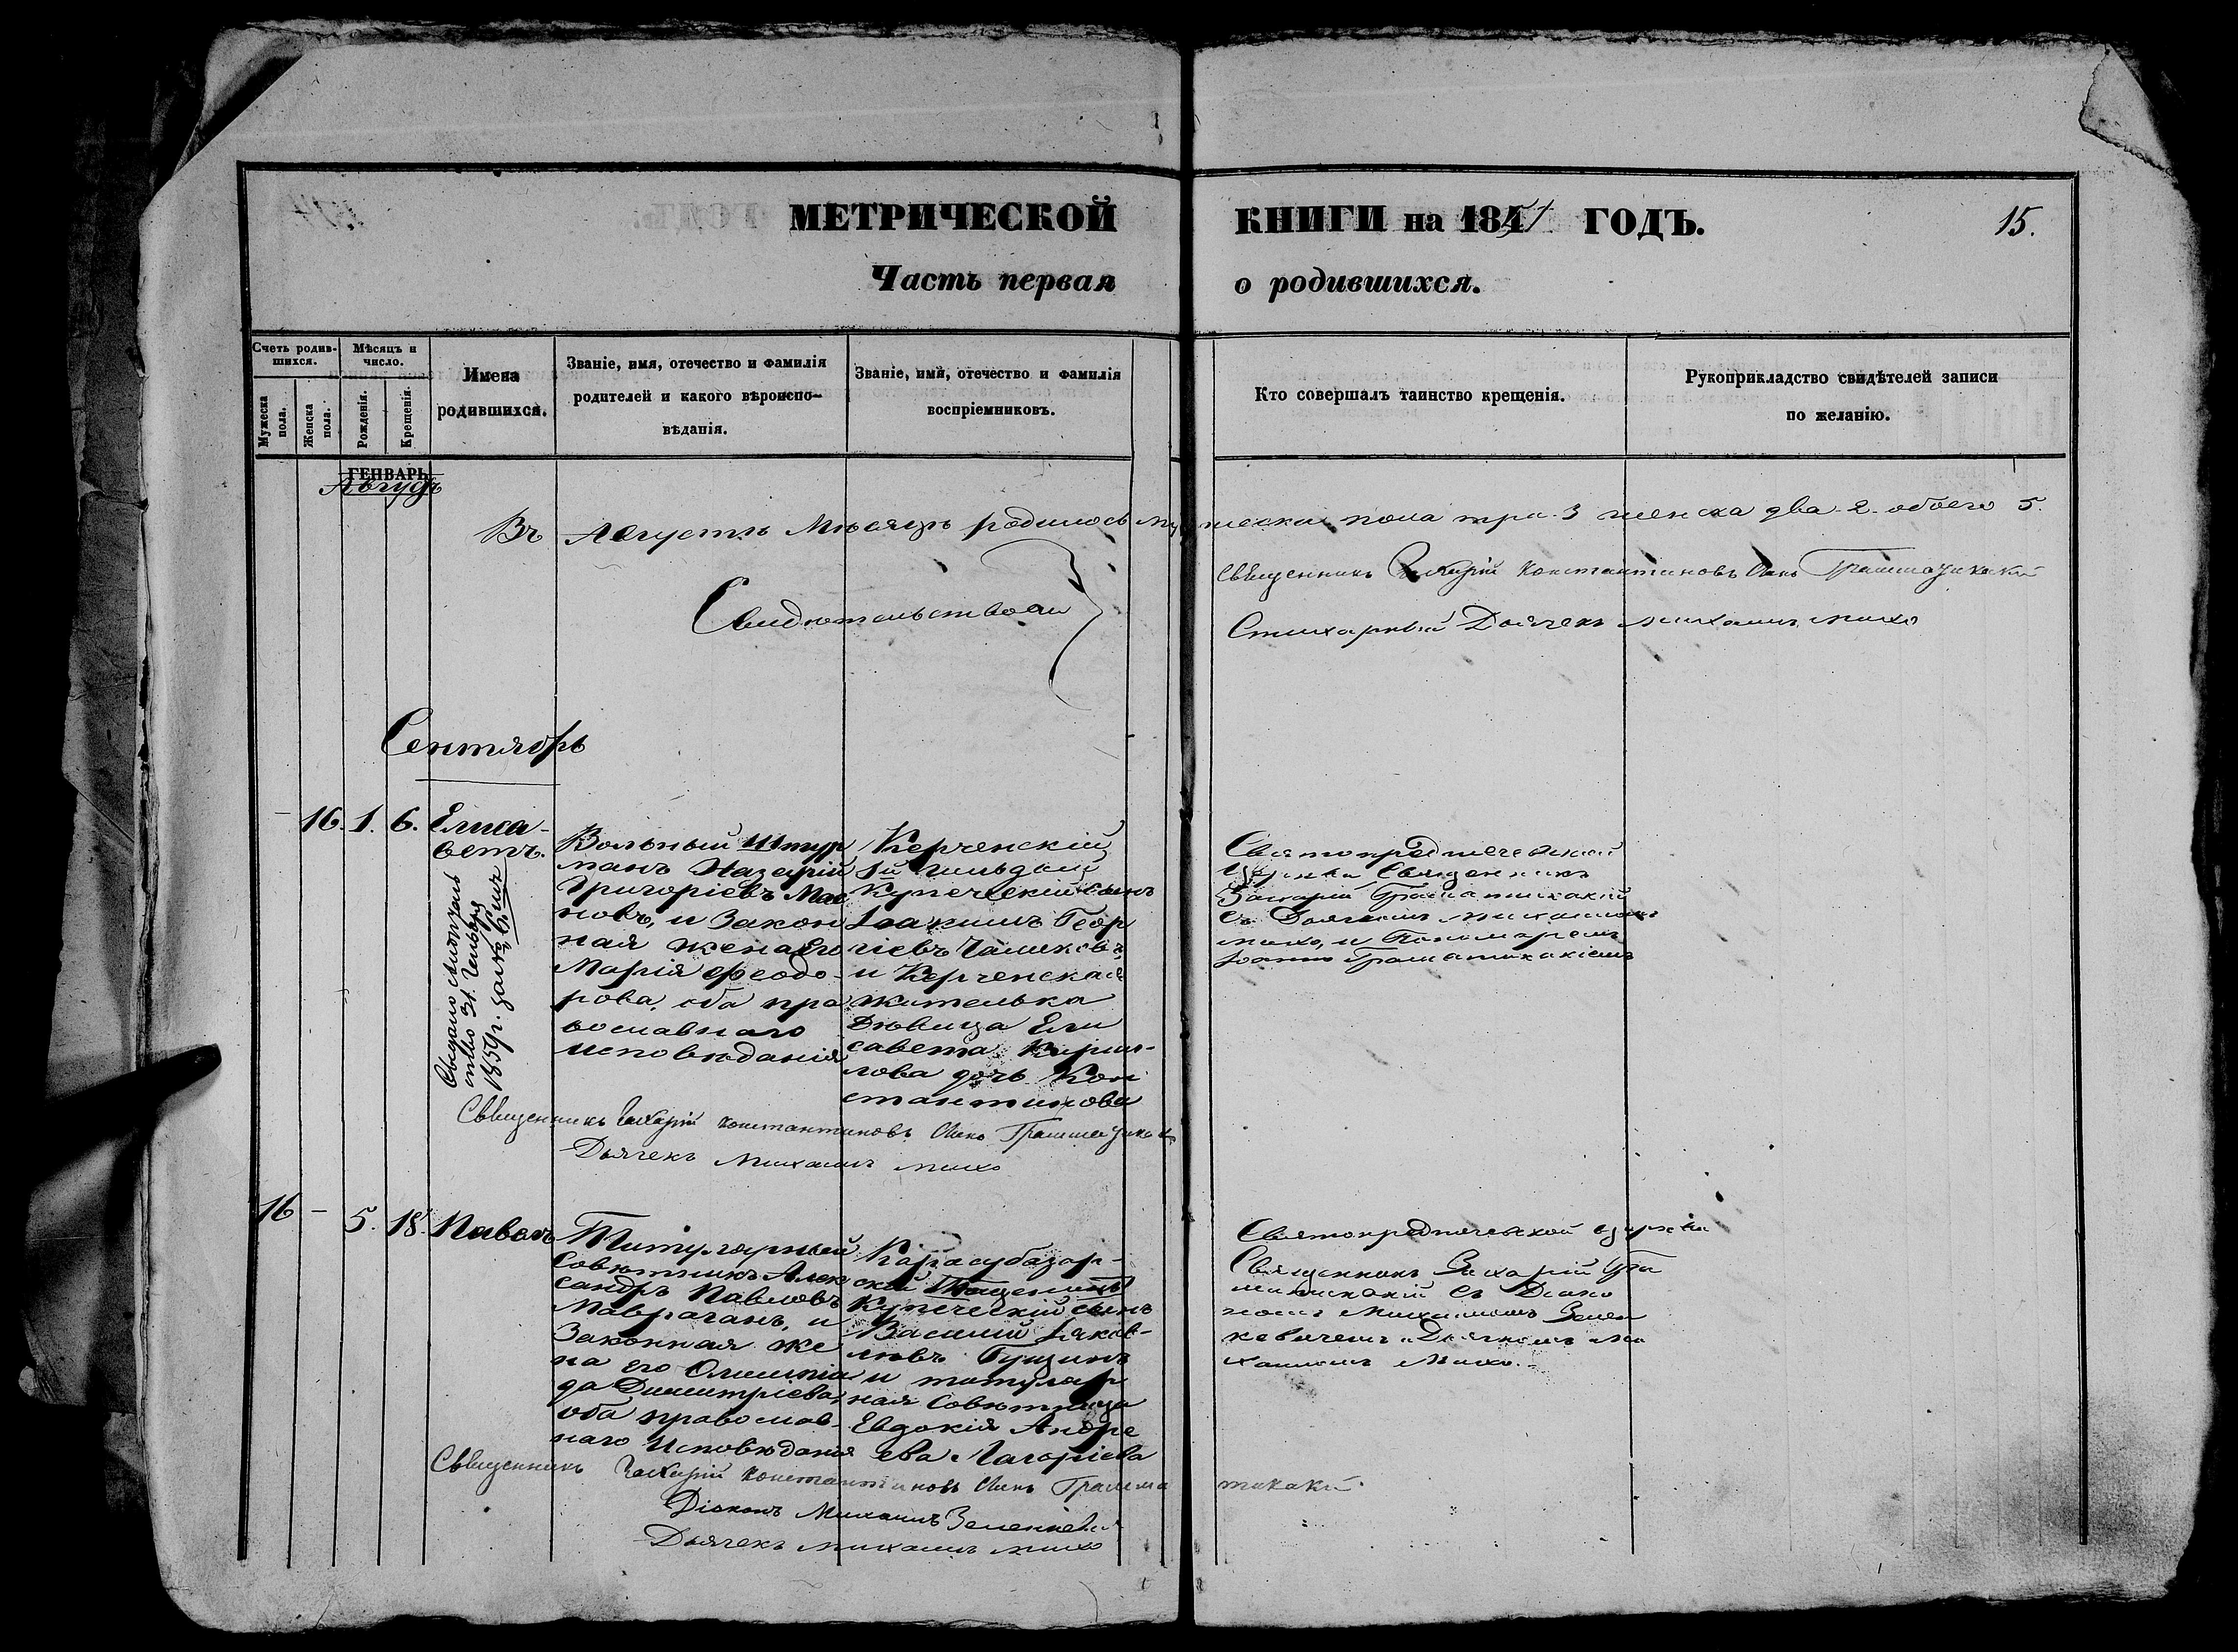 МЕТРИЧЕСКОЙ КНИГИ на 1851 ГОДЪ.
15.
Часть первая о родившихся.
Счетъ родившихся.
Мужеска пола.
Женска пола.
Мѣсяцъ и число.
Рожденія.
Крещенія.
Имена родившихся.
Званіе, имя, отечество и фамилія
родителей и какого вѣроиспо-
вѣданія.
Званіе, имя, отечество и фамилія
воспріемниковъ.
Кто совершалъ таинство крещенія.
Рукоприкладство свидѣтелей записи
по желанію.
ГЕНВАРЬ
Августъ
Въ Августѣ Мѣсяцѣ родилось мужеска пола три 3 женска два 2 обоего 5.
Свидѣтельствовали
Священникъ Захарій Константиновъ сынъ Грамматикакій
Стихарный Дьячекъ Михаилъ Михо
Сентябрь
16. 1. 6.
Елиса-
ветъ.
1859 г.
Вольный Штур
манъ Назарій
Григоріевъ
новъ, и Закон
ная жена его
Марія Ѳеодо-
рова, оба пра
вославнаго
исповѣданія
Керченскій
1й гильдіи
Купеческій сынъ
Іоакимъ Геор
гіевъ
и Керченская
жителька
Дѣвица Ели
савета Кирил-
лова дочь Кон
стантинова
Святопредтеческой
Церкви Священникъ
Захарій Граматикакій
съ Дьячкомъ Михаиломъ
Михо, и Пономаремъ
Іоанномъ Граматикакіемъ
Священникъ Захарій Константиновъ сынъ Грамматикакій
Дьячекъ Михаилъ Михо
16 - 5. 18. Павелъ
Титулярный
Совѣтникъ Алек
сандръ Павловъ
Маврогань, и
Законная же
на его Олимпіа
да Димитріева,
оба православ-
наго Исповѣданія
Карасубазар-
скій
Купеческій сынъ
Василій Яков-
левъ Гущинъ
и титуляр
ная Совѣтница
Евдокія Андре
ева Лагоріева
Святопредтеческой церкви
Священникъ Захарій Гра
матикакій съ Діако
номъ Михаиломъ Зелен
кевичемъ и Дьячкомъ Ми
хаиломъ Михо.
Священникъ Захарій Константиновъ сынъ Грамма тикакій.
Діаконъ Михаилъ
Дьячекъ Михаилъ Михо